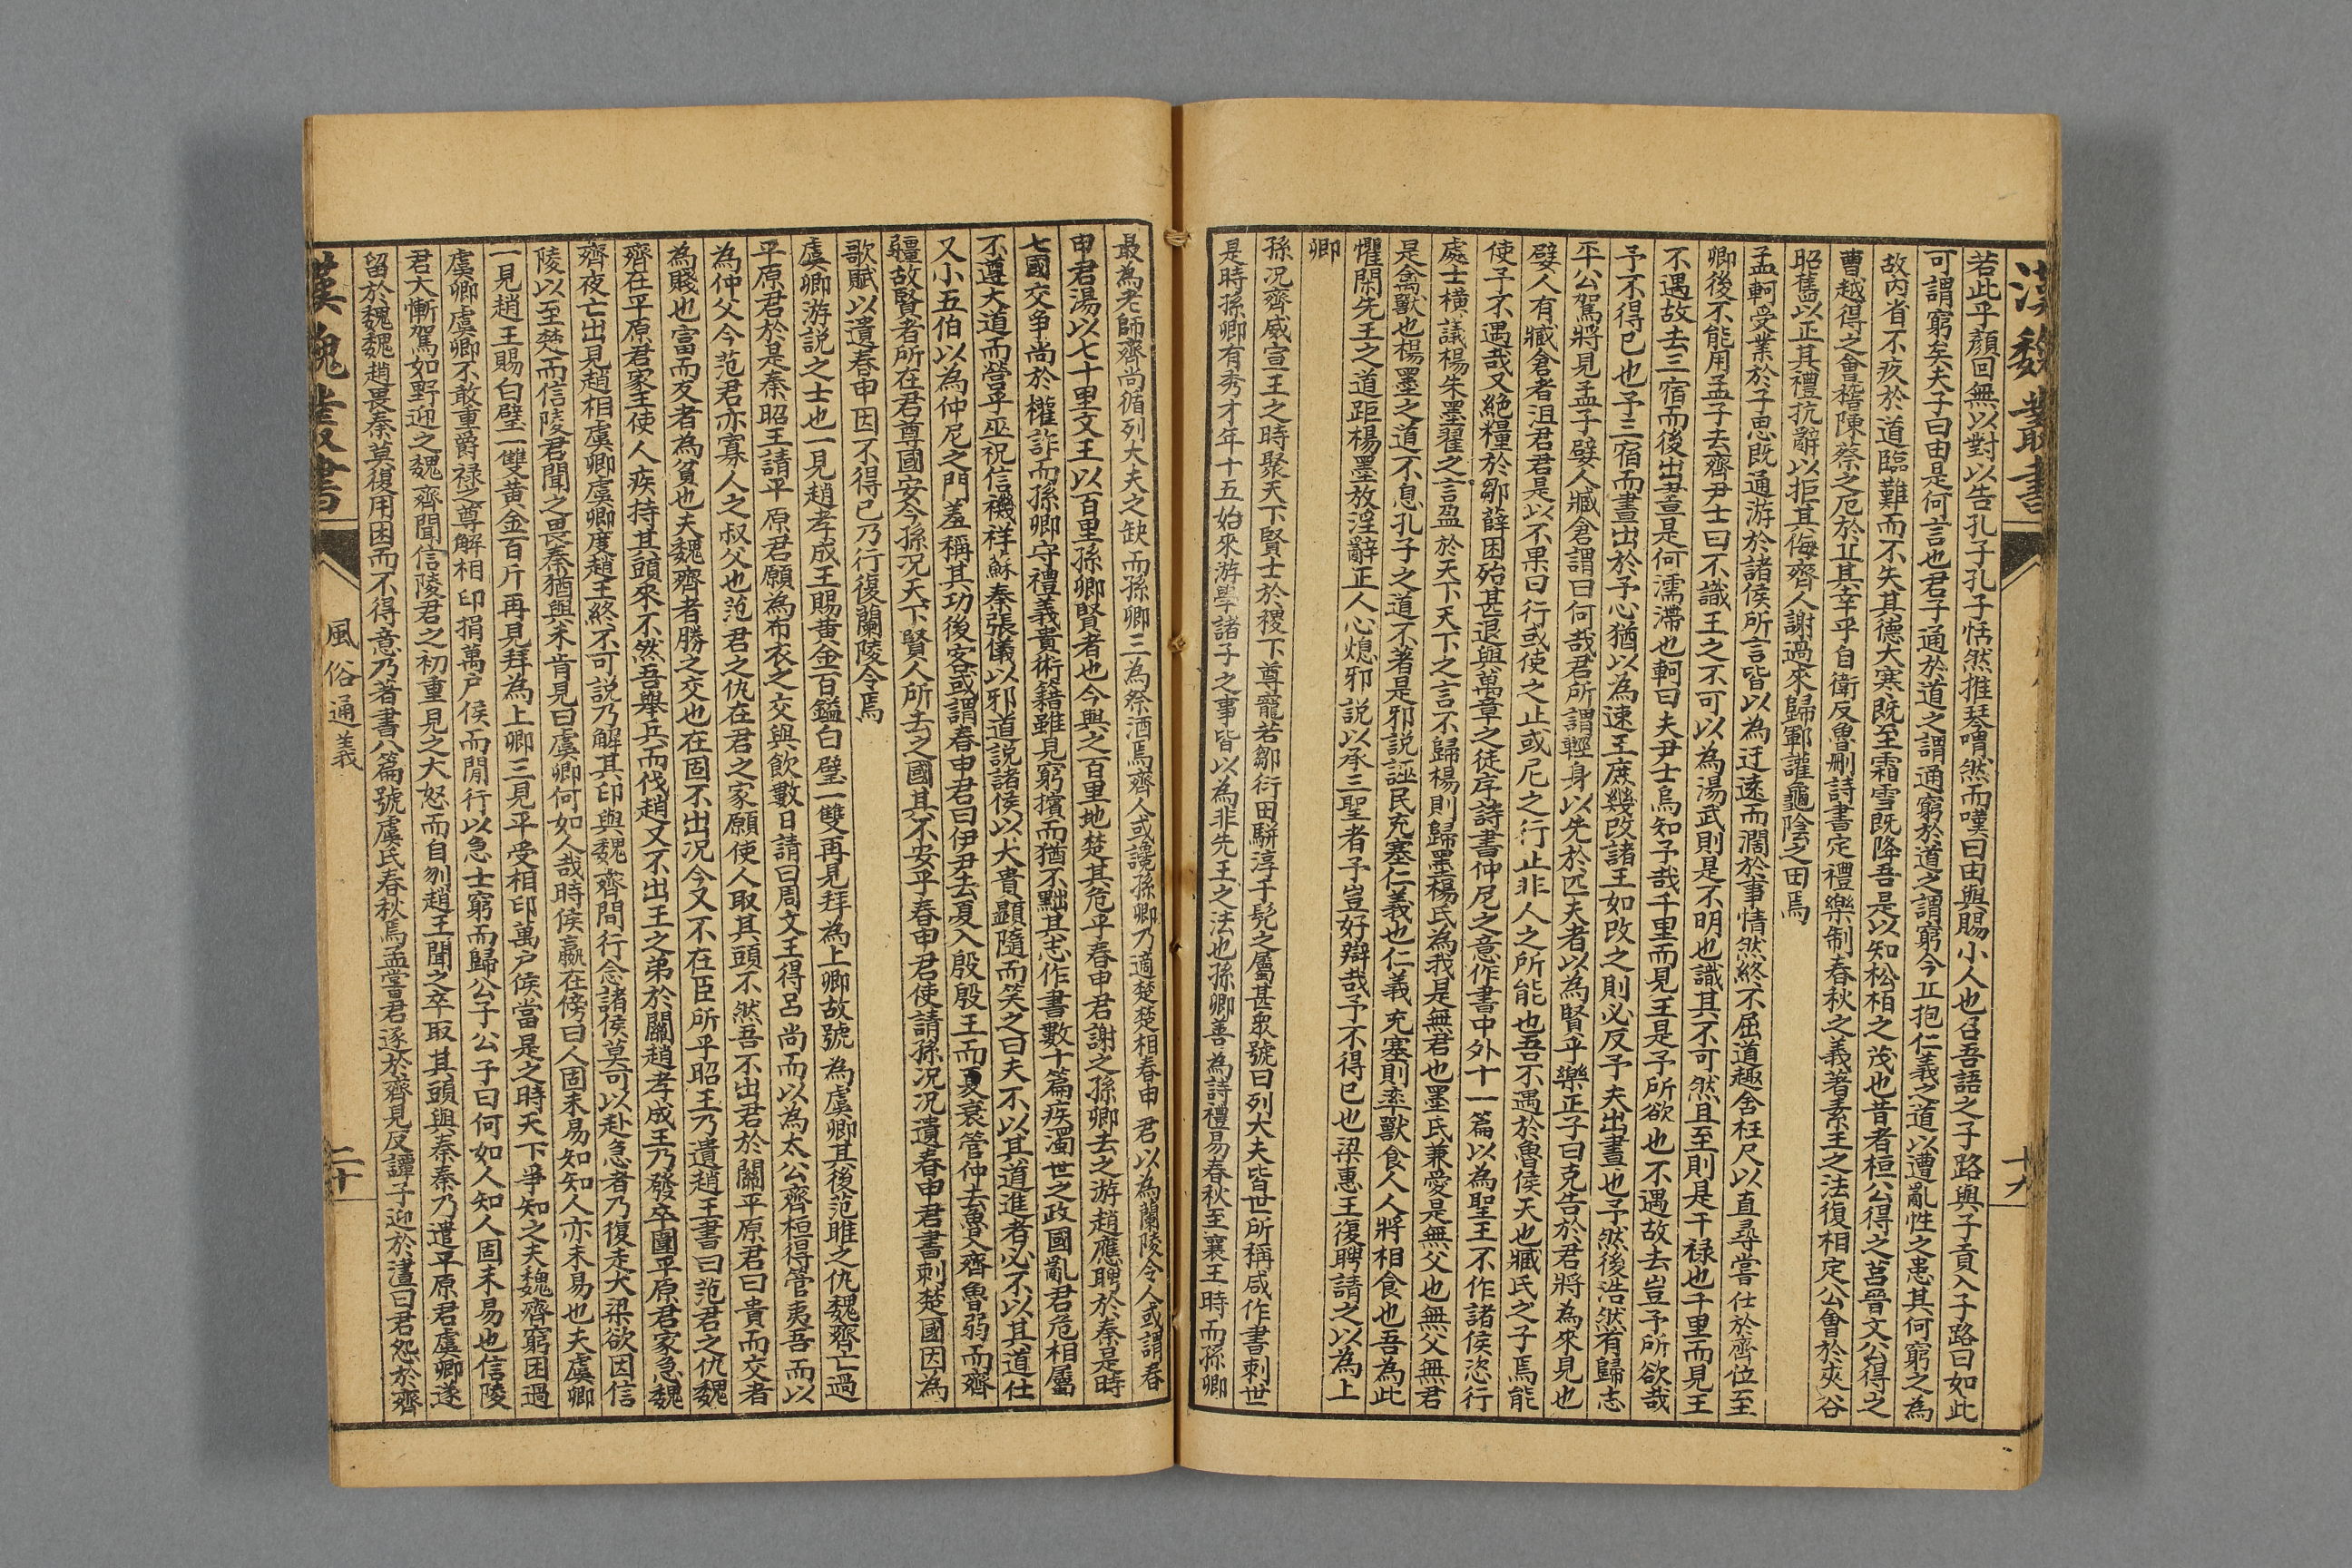 漢魏叢書
十九
若此乎顏回無以對以告孔子孔子恬然推琴喟然而嘆曰由與賜小人也召吾語之子路與子貢入子路曰如此
可謂窮矣夫子曰由是何言也君子通於道之謂通窮於道之謂窮今丘抱仁義之道以遭亂性之患其何窮之為
故內省不疚於道臨難而不失其德大寒既至霜雪既降吾是以知松柏之茂也昔者桓公得之莒晉文公得之
曹越得之會稽陳蔡之厄於丘其幸乎自衛反魯刪詩書定禮樂制春秋之義著素王之法復相定公會於夾谷
昭舊以正其禮抗辭以拒其侮齊人謝過來歸鄆讙龜陰之田焉
孟軻受業於子思既通游於諸侯所言皆以為迂遠而濶於事情然終不屈道趣舍枉尺以直尋嘗仕於齊位至
卿後不能用孟子去齊尹士曰不識王之不可以為湯武則是不明也識其不可然且至則是干祿也千里而見王
不遇故去三宿而後出晝是何濡滯也軻曰夫尹士烏知予哉千里而見王是予所欲也不遇故去豈予所欲哉
予不得已也予三宿而晝出於予心猶以為速王庶幾改諸王如改之則必反予夫出晝也予然後浩然有歸志
平公駕將見孟子嬖人臧倉謂曰何哉君所謂輕身以先於匹夫者以為賢乎樂正子曰克告於君將為來見也
嬖人有臧倉者沮君君是以不果曰行或使之止或尼之行止非人之所能也吾不遇於魯侯天也臧氏之子焉能
使予不遇哉又絕糧於鄒薛困殆甚退與萬章之徒序詩書仲尼之意作書中外十一篇以為聖王不作諸侯恣行
處士橫議楊朱墨翟之言盈於天下天下之言不歸楊則歸墨楊氏為我是無君也墨氏兼愛是無父也無父無君
是禽獸也楊墨之道不息孔子之道不著是邪說誣民充塞仁義也仁義充塞則率獸食人人將相食也吾為此
懼閑先王之道距楊墨放淫辭正人心熄邪說以承三聖者予豈好辯哉予不得已也梁惠王復聘請之以為上
卿
孫況齊威宣王之時聚天下賢士於稷下尊寵若鄒衍田駢淳于髡之屬甚衆號曰列大夫皆世所稱咸作書刺世
是時孫卿有秀才年十五始來游學諸子之事皆以為非先王之法也孫卿善為詩禮易春秋至襄王時而孫卿
最為老師齊尚循列大夫之缺而孫卿三為祭酒焉齊人或讒孫卿乃適楚楚相春申君以為蘭陵令人或謂春
申君湯以七十里文王以百里孫卿賢者也今與之百里地楚其危乎春申君謝之孫卿去之游趙應聘於秦是時
七國交爭尚於權詐而孫卿守禮義貴術籍雖見窮擯而猶不黜其志作書數十篇疾濁世之政國亂君危相屬
不遵大道而營乎巫祝信禨祥蘇秦張儀以邪道說諸侯以大貴顯隨而笑之曰夫不以其道進者必不以其道仕
又小五伯以為仲尼之門羞稱其功後客或謂春申君曰伊尹去夏入殷殷王而夏衰管仲去魯入齊魯弱而齊
疆故賢者所在君尊國安今孫況天下賢人所去之國其不安乎春申君使請孫況況遺春申君書刺楚國因為
歌賦以遺春申因不得已乃行復蘭陵令焉
虞卿游說之士也一見趙孝成王賜黃金百鎰白璧一雙再見拜為上卿故號為虞卿其後范雎之仇魏齊亡過
平原君於是秦昭王請平原君願為布衣之交與飲數日請曰周文王得呂尚而以為太公齊桓得管夷吾而以
為仲父今范君亦寡人之叔父也范君之仇在君之家願使人取其頭不然吾不出君於關平原君曰貴而交者
為賤也富而友者為貧也夫魏齊者勝之交也在固不出況今又不在臣所乎昭王乃遺趙王書曰范君之仇魏
齊在平原君家王使人疾持其頭來不然吾舉兵而伐趙又不出王之弟於關趙孝成王乃發卒圍平原君家急魏
齊夜亡出見趙相虞卿虞卿度趙王終不可說乃解其印與魏齊間行念諸侯莫可以赴急者乃復走大梁欲因信
陵以至楚而信陵君聞之畏秦猶與未肯見曰虞卿何如人哉時侯嬴在傍曰人固未易知知人亦未易也夫虞卿
一見趙王賜白璧一雙黃金百斤再見拜為上卿三見平受相印萬戶侯當是之時天下爭知之夫魏齊窮困過
虞卿虞卿不敢重爵祿之尊解相印捐萬戶侯而閒行以急士窮而歸公子公子曰何如人知人固未易也信陵
君大慚駕如野迎之魏齊聞信陵君之初重見之大怒而自刎趙王聞之卒取其頭與秦秦乃遣平原君虞卿遂
留於魏魏趙畏秦莫復用困而不得意乃著書八篇號虞氏春秋焉孟嘗君逐於齊見反譚子迎於澅曰君怨於齊
漢魏叢書
風俗通義
二十